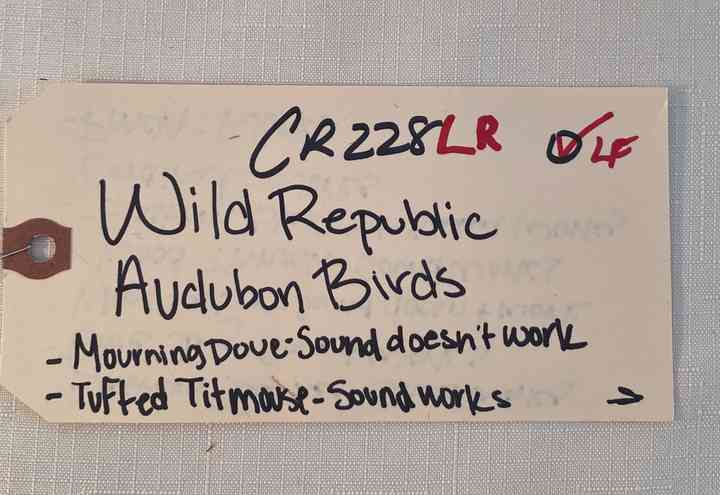 CR228LR O✓LF
Wild Republic
Audubon Birds
- Mourning Dove-Sound doesn't work
- Tufted Titmouse-Sound works →